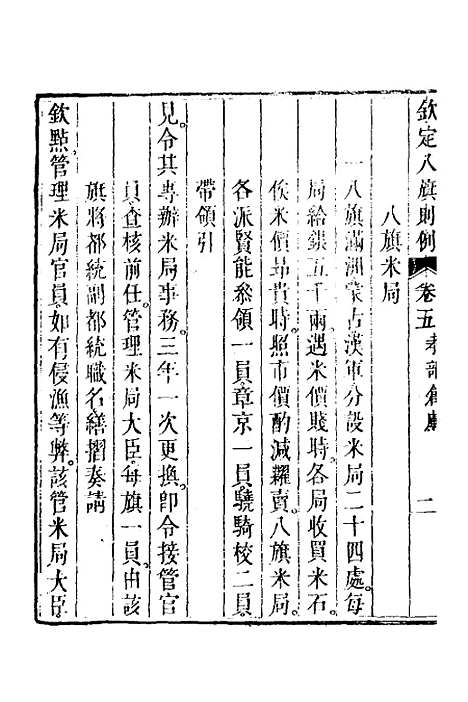 欽定八旗則例 卷五 孝部倉廒 二
八旗米局
一八旗滿洲蒙古漢軍分設米局二十四處每
局給銀五千兩遇米價賤時各局收買米石
俟米價昻貴時照市價酌減糶賣八旗米局
各派賢能叅領一員章京一員驍騎校二員
帶領引
見令其專辦米局事務三年一次更換卽令接管官
員查核前任管理米局大臣每旗一員由該
旗將都統副都統職名繕摺奏請
欽點管理米局官員如有侵漁等弊該管米局大臣